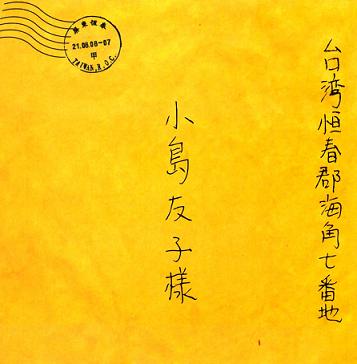 台湾恒春郡海角七番地
小島友子様
21.08.08-07
甲
TAIWAN,R.O.C.